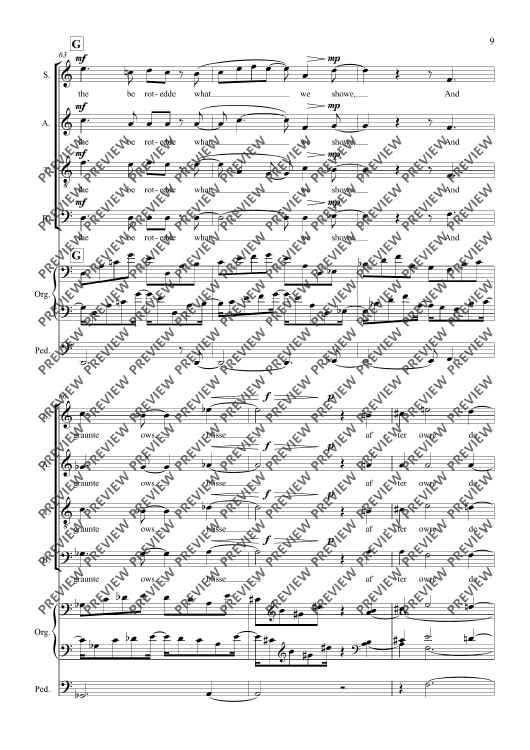 G
9
63
mf
mp
S.
the be rot-edde what we showe, And
mf
mp
A.
the be rot-edde what we showe, And
mf
mp
the be rot-edde what we showe, And
mf
mp
the be rot-edde what we showe, And
G
Org.
Ped.
f p
graunte ows blisse af ter owre de
f p
graunte ows blisse af ter owre de
f p
graunte ows blisse af ter owre de
f p
graunte ows blisse af ter owre de
Org.
Ped.
PREVIEW PREVIEW PREVIEW PREVIEW PREVIEW PREVIEW PREVIEW